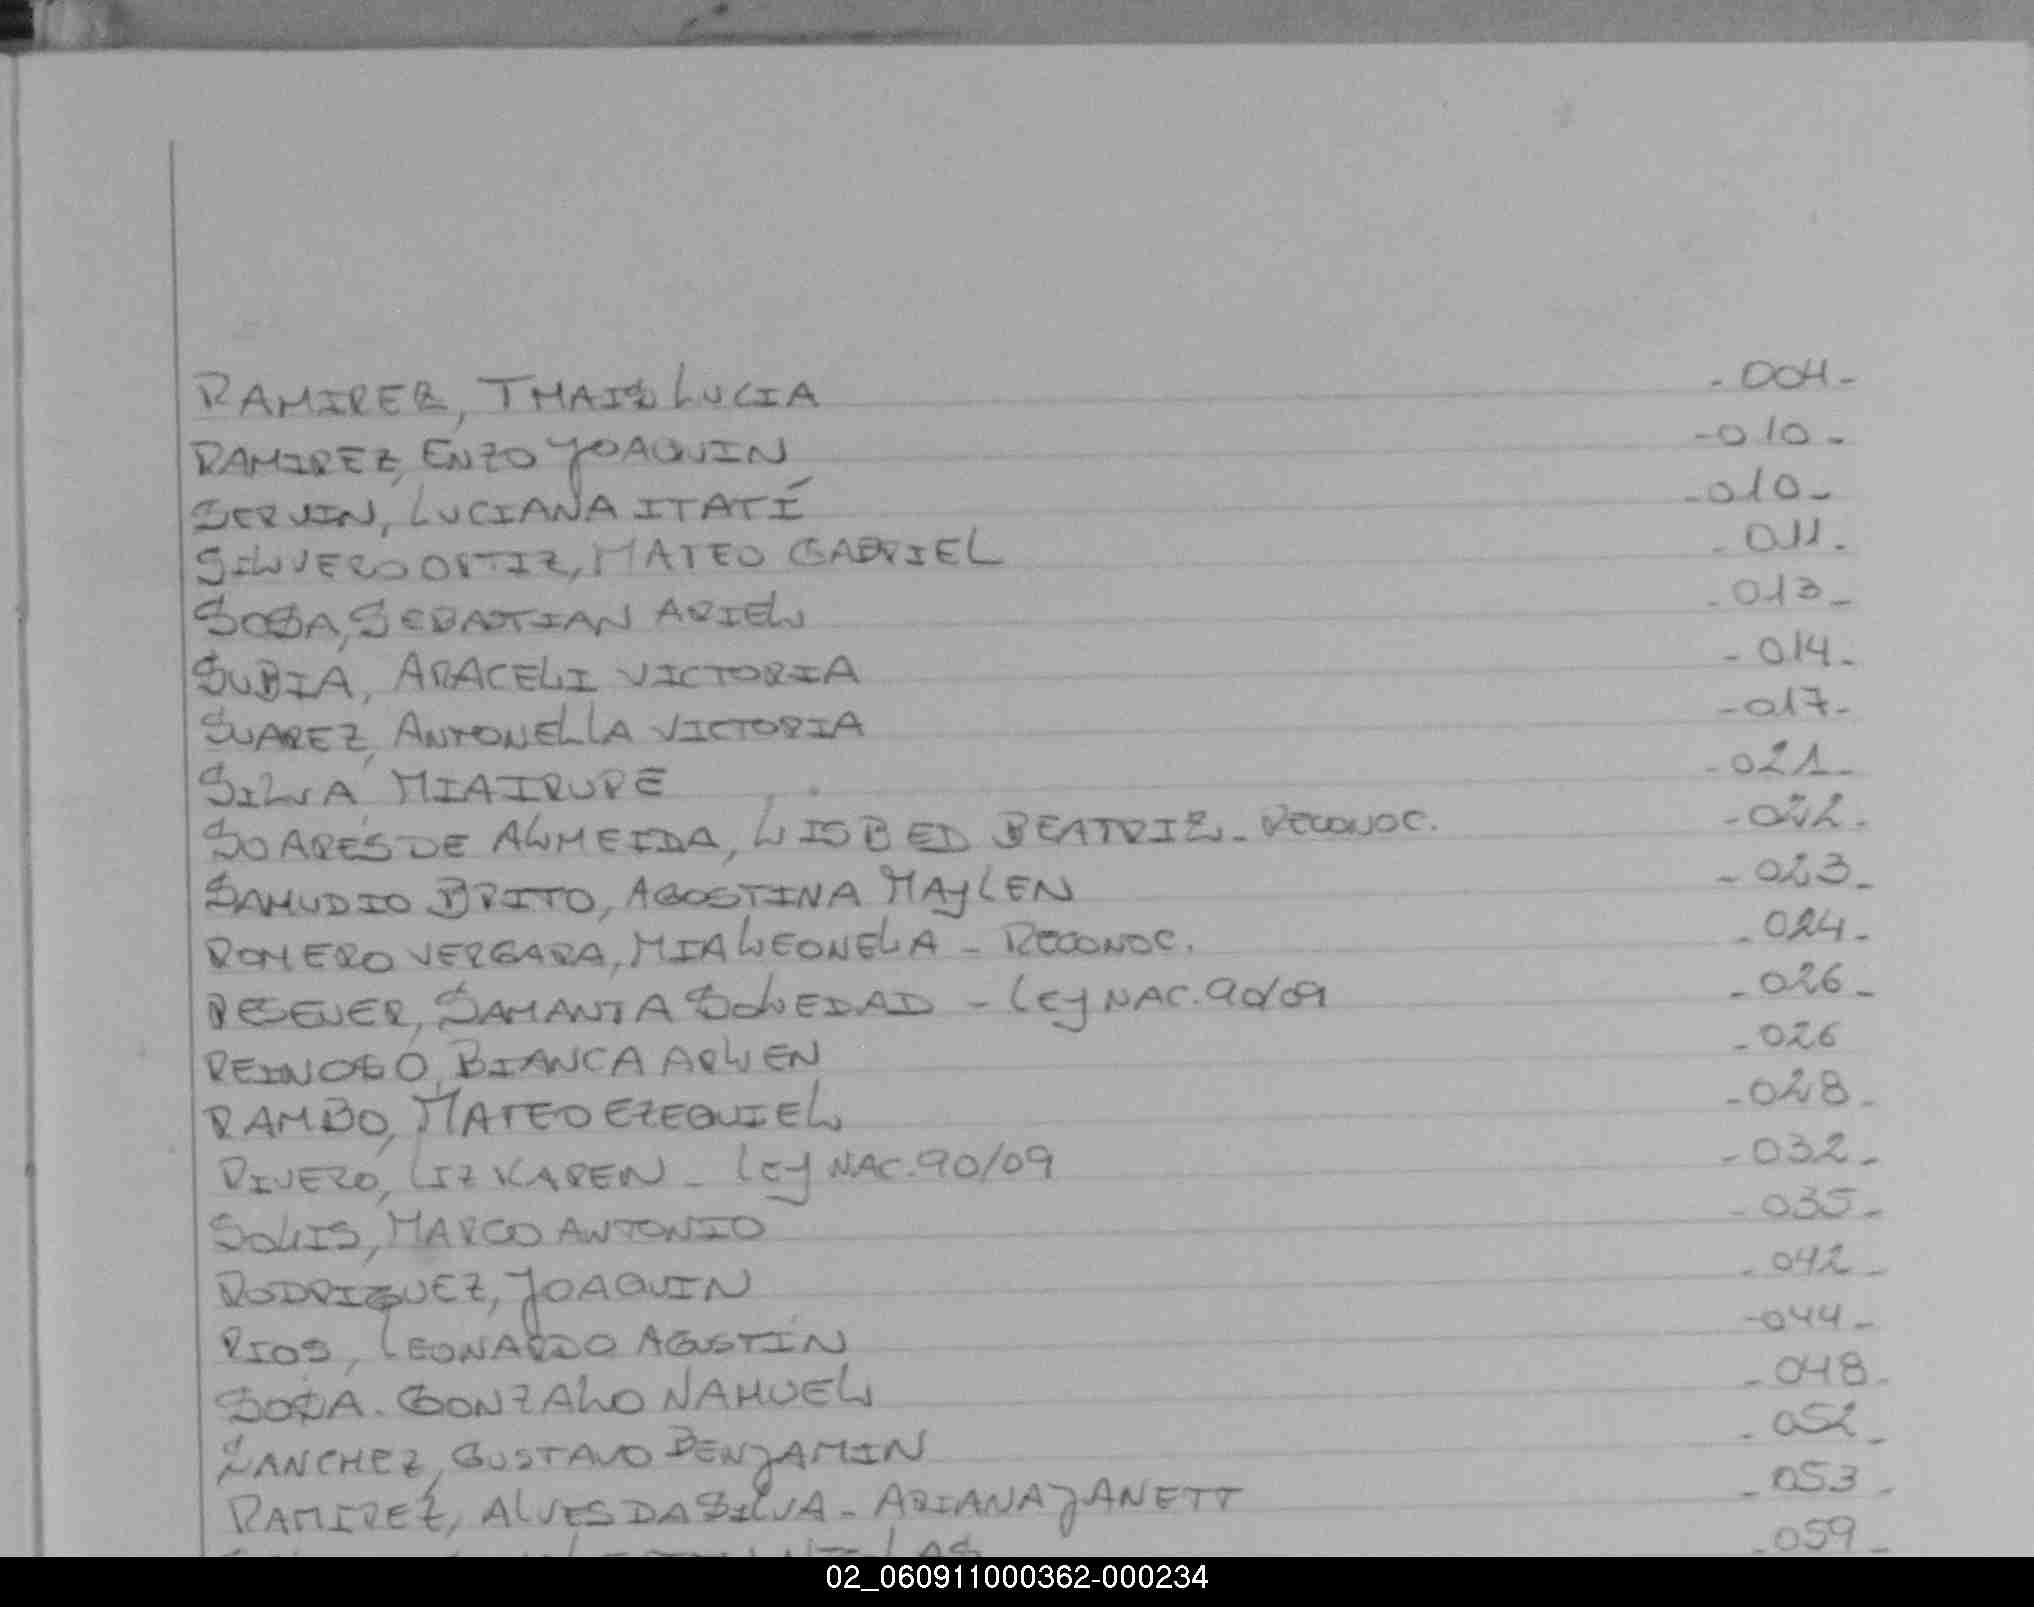 RAMIREZ, THAIS LUCIA -004-
RAMIREZ, ENZO JOAQUIN -010-
SERVIN, LUCIANA ITATÍ -010-
SILVERO ORTIZ, MATEO GABRIEL -011-
SOSA, SEBASTIAN ARIEL -013-
SUBIA, ARACELI VICTORIA -014-
SUAREZ, ANTONELLA VICTORIA -017-
SILVA MIA IRUPÉ -021-
SOARES DE ALMEIDA, LISBED BEATRIZ - RECONOC. -022-
SAMUDIO BRITO, AGOSTINA MAYLEN -023-
ROMERO VERGARA, MIA LEONELA - RECONOC. -024-
RESENER, SAMANTA SOLEDAD - LEY NAC. 90/09 -026-
REINOSO, BIANCA ARLEN -026
RAMBO, MATEO EZEQUIEL -028-
RIVERO, LIZ KAREN - LEY NAC. 90/09 -032-
SOLIS, MARCO ANTONIO -035-
RODRIGUEZ, JOAQUIN -042-
RIOS, LEONARDO AGUSTÍN -044-
SOSA. GONZALO NAHUEL -048-
SANCHEZ, GUSTAVO BENJAMIN -052-
RAMIREZ, ALVES DA SILVA - ARIANA JANETT -053-
-059-
02_060911000362-000234